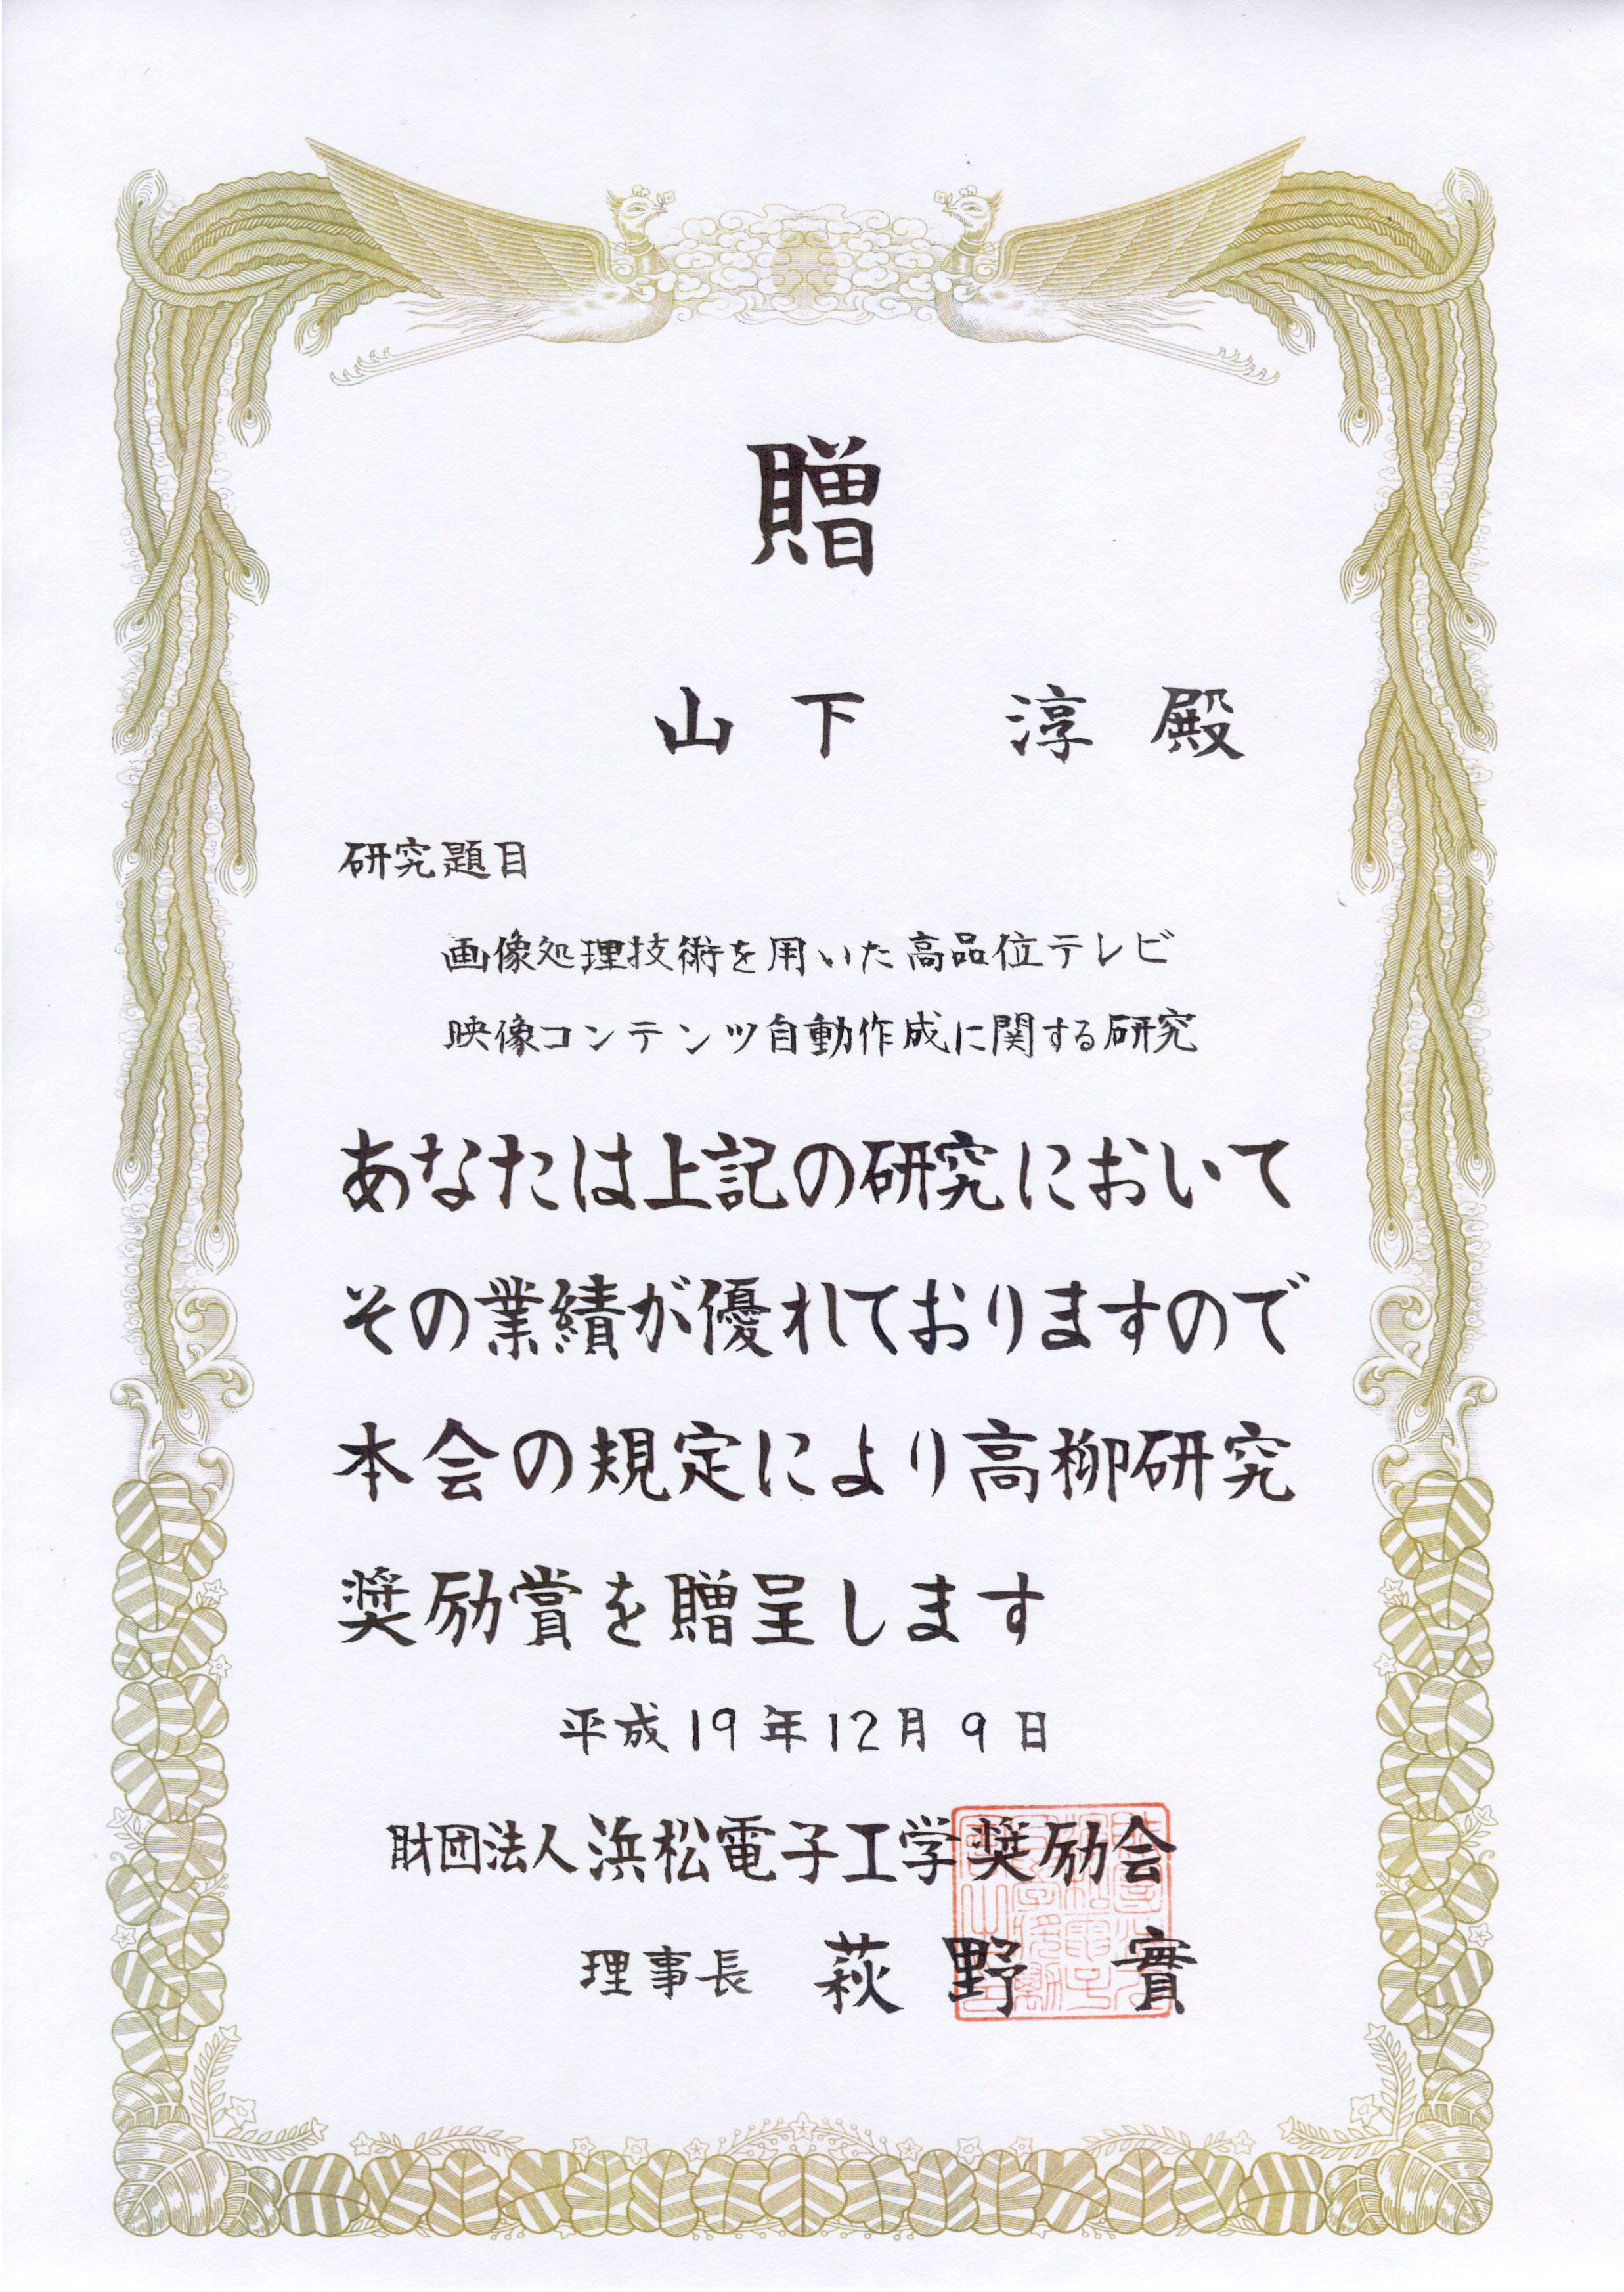 贈
山下 淳 殿
研究題目
画像処理技術を用いた高品位テレビ
映像コンテンツ自動作成に関する研究
あなたは上記の研究において
その業績が優れておりますので
本会の規定により高柳研究
奨励賞を贈呈します
平成19年12月9日
財団法人浜松電子工学奨励会
理事長 萩野 實